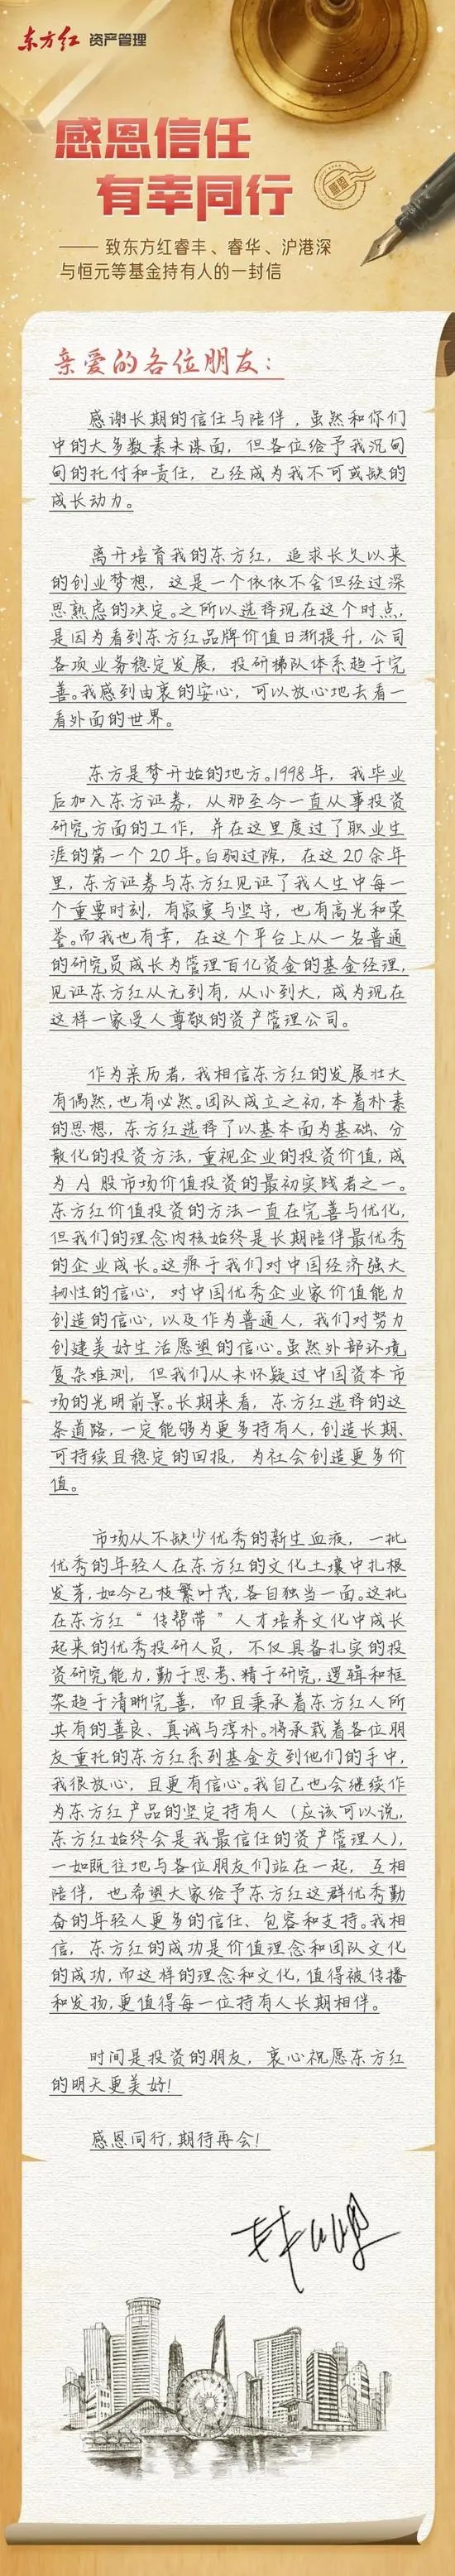 东方红 资产管理
感恩信任
有幸同行
—— 致东方红睿丰、睿华、沪港深
与恒元等基金持有人的一封信
亲爱的各位朋友：
感谢长期的信任与陪伴，虽然和你们
中的大多数素未谋面，但各位给予我沉甸
甸的托付和责任，已经成为我不可或缺的
成长动力。
离开培育我的东方红，追求长久以来
的创业梦想，这是一个依依不舍但经过深
思熟虑的决定。之所以选择现在这个时点，
是因为看到东方红品牌价值日渐提升，公司
各项业务稳定发展，投研梯队体系趋于完
善。我感到由衷的安心，可以放心地去看一
看外面的世界。
东方是梦开始的地方。1998年，我毕业
后加入东方证券，从那至今一直从事投资
研究方面的工作，并在这里度过了职业生
涯的第一个20年。白驹过隙，在这20余年
里，东方证券与东方红见证了我人生中每一
个重要时刻，有寂寞与坚守，也有高光和荣
誉。而我也有幸，在这个平台上从一名普通
的研究员成长为管理百亿资金的基金经理，
见证东方红从无到有，从小到大，成为现在
这样一家受人尊敬的资产管理公司。
作为亲历者，我相信东方红的发展壮大
有偶然，也有必然。团队成立之初，本着朴素
的思想，东方红选择了以基本面为基础、分
散化的投资方法，重视企业的投资价值，成
为A股市场价值投资的最初实践者之一。
东方红价值投资的方法一直在完善与优化，
但我们的理念内核始终是长期陪伴最优秀
的企业成长。这源于我们对中国经济强大
韧性的信心，对中国优秀企业家价值能力
创造的信心，以及作为普通人，我们对努力
创建美好生活愿望的信心。虽然外部环境
复杂难测，但我们从未怀疑过中国资本市
场的光明前景。长期来看，东方红选择的这
条道路，一定能够为更多持有人，创造长期、
可持续且稳定的回报，为社会创造更多价
值。
市场从不缺少优秀的新生血液，一批
优秀的年轻人在东方红的文化土壤中扎根
发芽，如今已枝繁叶茂，各自独当一面。这批
在东方红“传帮带”人才培养文化中成长
起来的优秀投研人员，不仅具备扎实的投
资研究能力，勤于思考、精于研究，逻辑和框
架趋于清晰完善，而且秉承着东方红人所
共有的善良、真诚与淳朴。将承载着各位朋
友重托的东方红系列基金交到他们的手中，
我很放心，且更有信心。我自己也会继续作
为东方红产品的坚定持有人（应该可以说，
东方红始终会是我最信任的资产管理人），
一如既往地与各位朋友们站在一起，互相
陪伴，也希望大家给予东方红这群优秀勤
奋的年轻人更多的信任、包容和支持。我相
信，东方红的成功是价值理念和团队文化
的成功，而这样的理念和文化，值得被传播
和发扬，更值得每一位持有人长期相伴。
时间是投资的朋友，衷心祝愿东方红
的明天更美好！
感恩同行，期待再会！